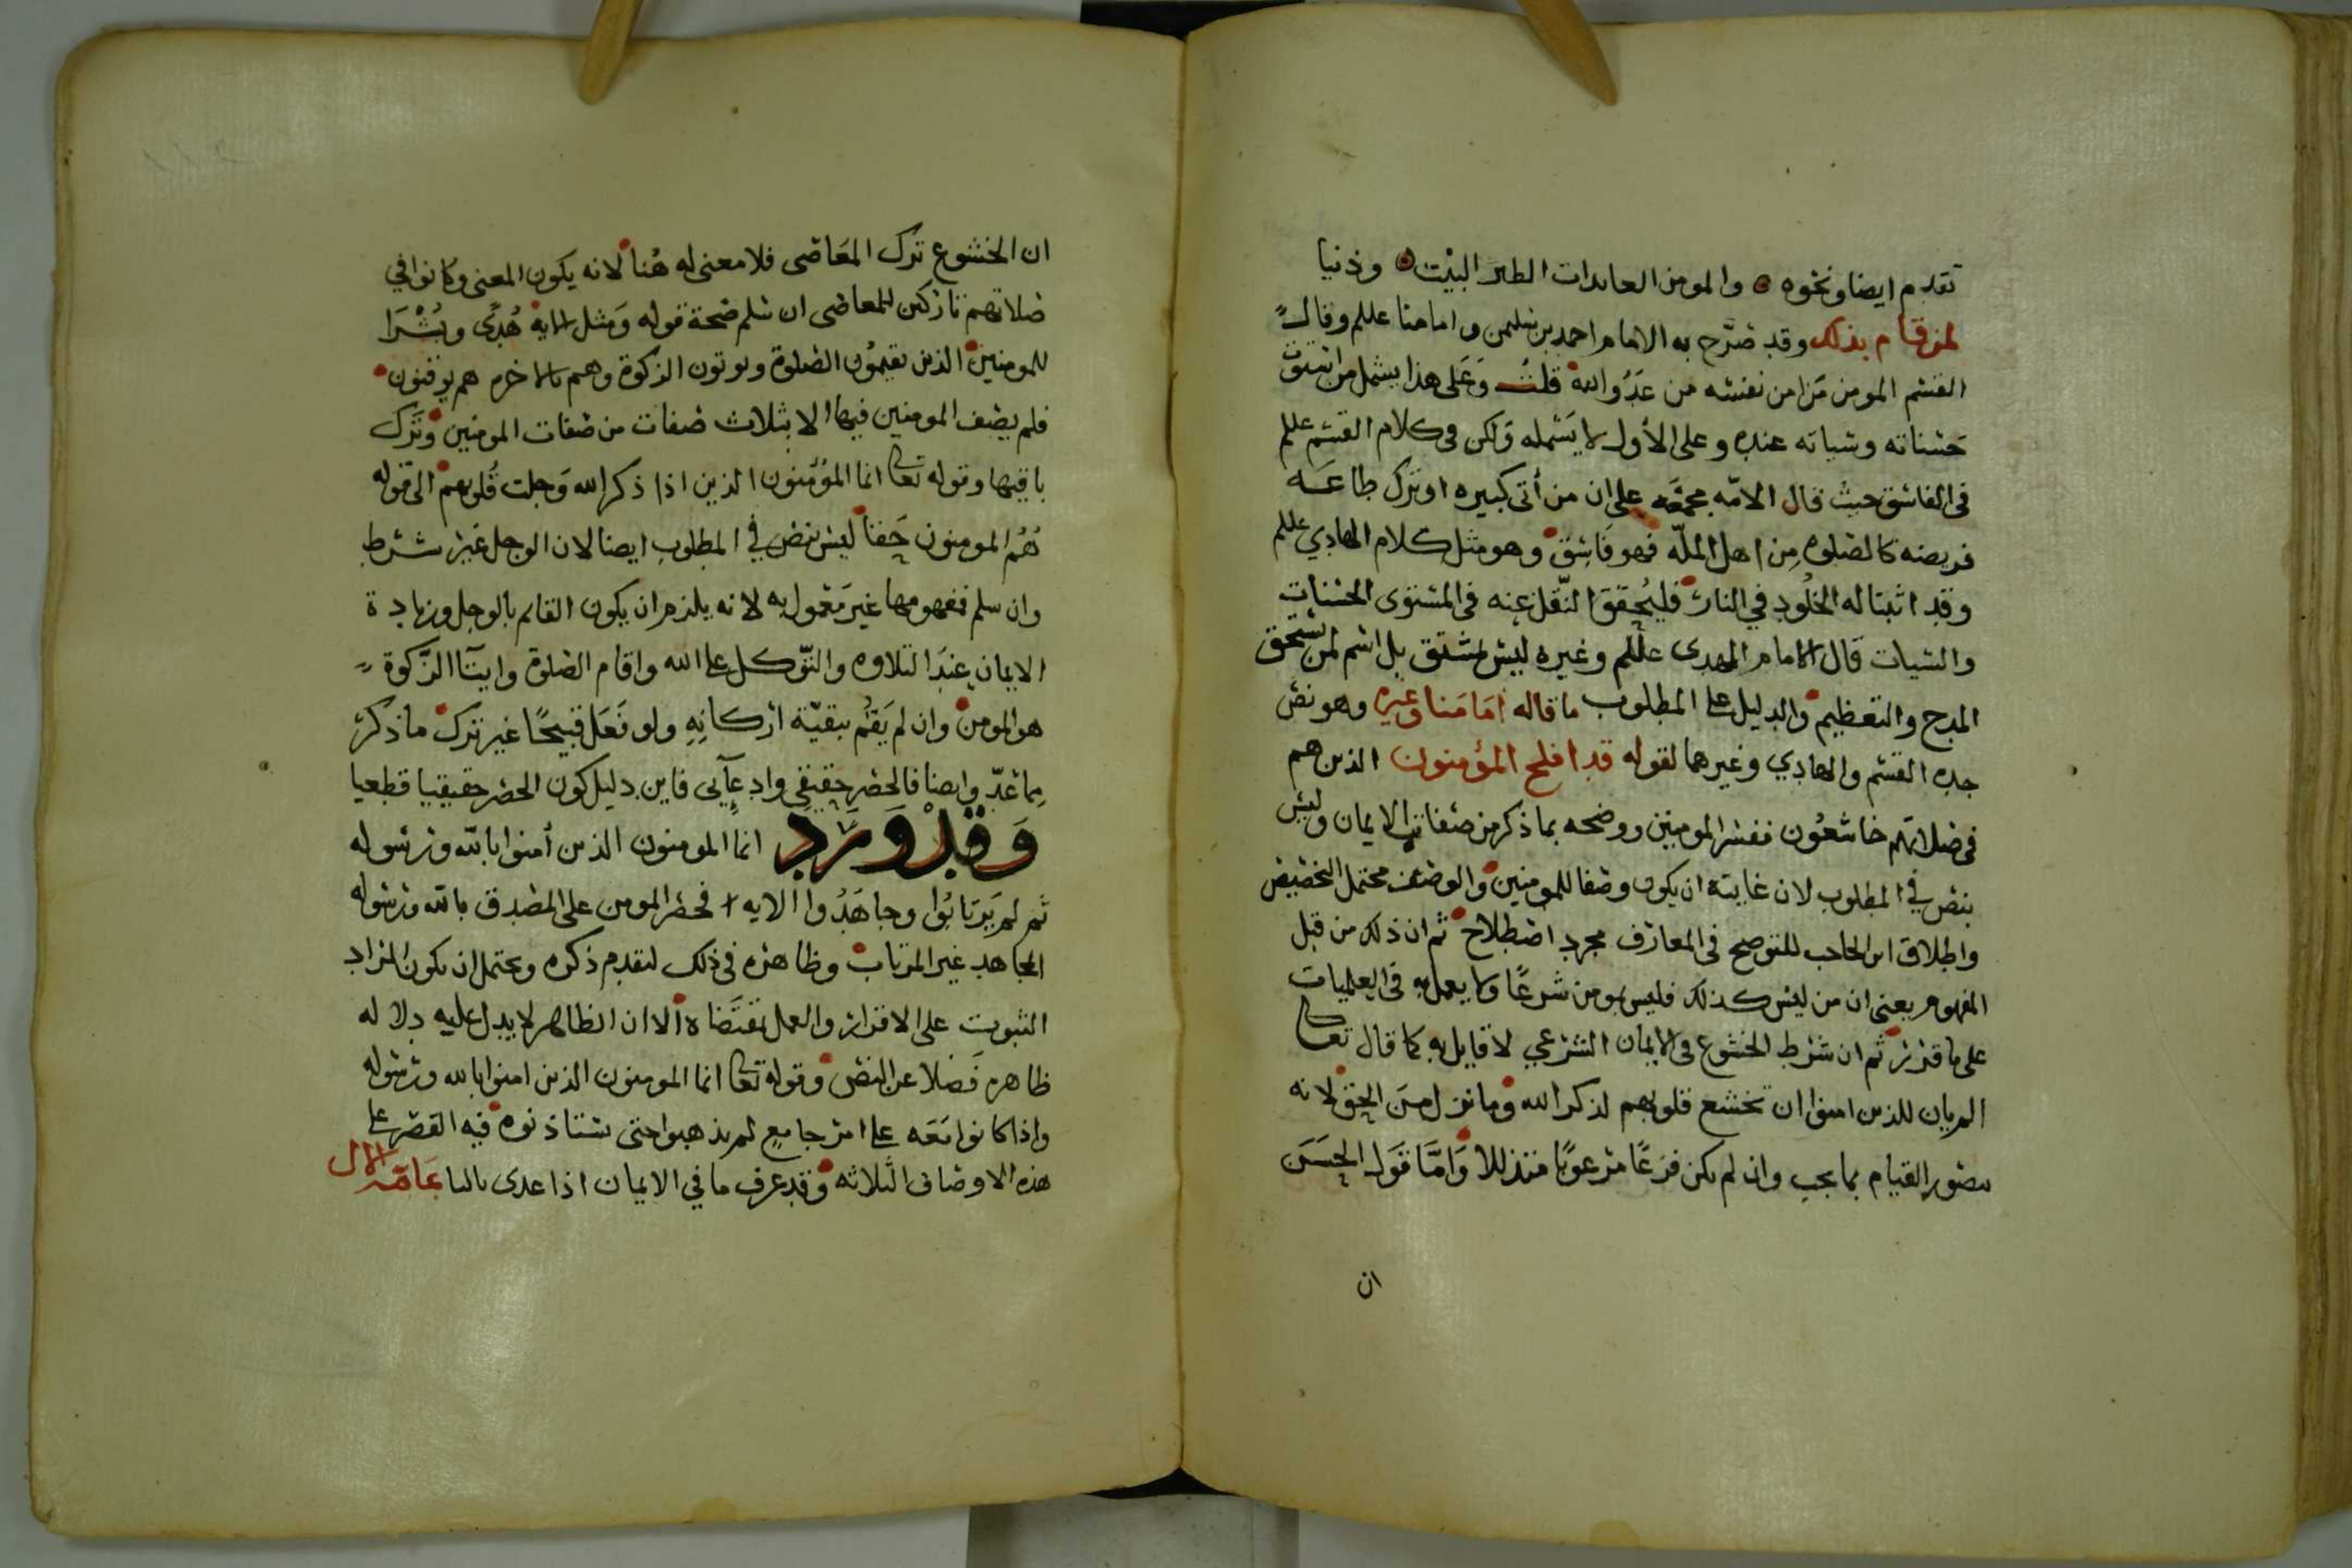 تقدم ايضا ونحوه والمومن العائذات الطير البيت وذنيا
لمن قام بذلك وقد صرح به الامام احمد بن سليمن وامامنا عللم وقال
القسم المومن من امن نفسه من عذو الله قلت وعلى هذا يشمل من استوت
حسناته وسياته عنده وعلى الأول لا يشمله ولكن في كلام القسم عللم
في الفاسق حيث قال الامه مجمعه على ان من أتى كبيره او ترك طاعه
فريضه كالصلوه من اهل المله فهو فاسق وهو مثل كلام الهادي عللم
وقد اثبتا له الخلود في النار فليحقق النقل عنه في المستوى الحسنات
والسيات قال الامام المهدى عللم وغيره ليس بمشتق بل اسم لمن يستحق
المدح والتعظيم والدليل على المطلوب ما قاله امامنا وغيره وهو نص
جده القسم والهادي وغيرهما لقوله قد افلح المؤمنون الذين هم
في صلاتهم خاشعون ففسر المومنين ووضحه بما ذكر من صفات الايمان وليس
بنص في المطلوب لان غايته ان يكون وصفا للمومنين والوصف محتمل التخصيص
واطلاق ابن الحاجب للتوضيح في المعارف مجرد اصطلاح ثم ان ذلك من قبل
المفهوم يعنى ان من ليس كذلك فليس بمومن شرعا ولا يعمل به في العلميات
على ما قرر ثم ان شرط الخشوع في الايمان الشرعي لا قايل به كما قال تعا
الم يان للذين امنوا ان تخشع قلوبهم لذكر الله وما نزل من الحق لانه
يتصور القيام بما يجب وان لم يكن فزعا مرعوبا متذللا وأما قول الحسن
ان
ان الخشوع ترك المعاصى فلا معنى له هنا لانه يكون المعنى وكانوا في
صلاتهم تاركين للمعاصى ان سلم صحة قوله ومثل الايه هدى وبشرا
للمومنين الذين يقيمون الصلوة ويوتون الزكوة وهم بالاخره هم يوقنون
فلم يصف المومنين فيها الا بثلاث صفات من صفات المومنين وترك
باقيها وقوله تعا انما المؤمنون الذين اذا ذكر الله وجلت قلوبهم الى قوله
هم المومنون حقا ليس بنص في المطلوب ايضا لان الوجل غير شرط
وان سلم فمفهومها غير معمول به لانه يلزم ان يكون القايم بالوجل وزيادة
الايمان عند التلاوه والتوكل على الله واقام الصلوة وايتاء الزكوة
هو المومن وان لم يقم ببقية اركانه ولو فعل قبيحا غير ترك ما ذكر
مما عد وايضا فالحصر حقيقي وادعآى فاين دليل كون الحصر حقيقيا قطعيا
وقد ورد انما المومنون الذين أمنوا بالله ورسوله
ثم لم يرتابوا وجاهدوا الايه فحصر المومن على المصدق بالله ورسوله
المجاهد غير المرتاب وظاهره في ذلك لتقدم ذكره ويحتمل ان يكون المراد
الثبوت على الاقرار والعمل بمقتضاه الا ان الظاهر لا يدل عليه دلاله
ظاهره فضلا عن النص وقوله تعا انما المومنون الذين امنوا بالله ورسوله
واذا كانوا معه على امر جامع لم يذهبوا حتى يستاذنوه فيه القصر على
هذه الاوصاف الثلاثه وقد عرف ما في الايمان اذا عدى بالبا عامة الال